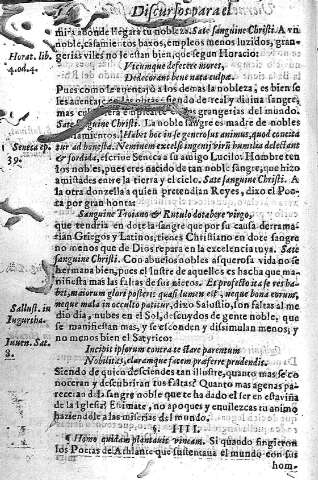 Discursos para el
mira adonde llegara tu nobleza. Sate sanguine Christi. A vn
noble, casamientos baxos, empleos menos luzidos, gran-
gerias viles no le estan bien, que segun Horacio:
Horat. lib.
4. od. 4.
Vtcumque defecere mores,
Dedecorant bene nata culpæ.
Pues como te auentajó a los demas la nobleza, es bien se
les auentajen las obras, siendo de real y diuina sangre,
mas cuerdo en grangerias del mundo.
Sate sanguine Christi. La noble sangre es madre de nobles
Habet hoc in se generosus animus, quod concita
Seneca ep.
39.
tur ad honesta. Neminem excelsi ingenij virũ humilia delectant
& sordida, escriue Seneca a su amigo Lucilo. Hombre ten
los nobles, pues eres nacido de tan noble sangre, que hizo
amistades entre la tierra y el cielo. Sate sanguine Christi. A
la otra donzella a quien pretendian Reyes, dixo el Poe-
ta por gran honra:
Sanguine Troiano & Rutulo dotabere virgo,
que tendria en dote la sangre que por su causa derrama-
rian Griegos y Latinos, tienes Christiano en dote sangre
no menos que de Dios repara en la excelencia tuya. Sate
sanguine Christi. Con abuelos nobles asquerosa vida no se
hermana bien, pues el lustre de aquellos es hacha que ma-
nifiesta mas las faltas de sus nietos. Et profecto ita se res ha-
bet, maiorum gloria posteris quasi lumen est, neque bona eorum,
neque mala in occulto patitur, dixo Salustio, son faltas al me
Sallust. in
Iugurtha.
dio dia, nubes en el Sol, descuydos de gente noble, que
se manifiestan mas, y se esconden y dissimulan menos; y
no menos bien el Satyrico:
Iuuen. Sat.
8.
Incipit ipsorum contra te stare parentum
Nobilitas, claramque facem præferre pudendis.
Siendo de quien desciendes tan illustre, quanto mas se co
noceran y descubriran tus faltas? Quanto mas agenas pa-
receran de la sangre noble que te ha dado el ser en esta viña
de la Iglesia? Estimate, no apoques y enuilezcas tu animo
haziendole a las miserias del mundo.
§. IIII.
¶ Homo quidam plantauit vineam. Si quando fingieron
los Poetas de Athlante que sustentaua el mundo con sus
hom-